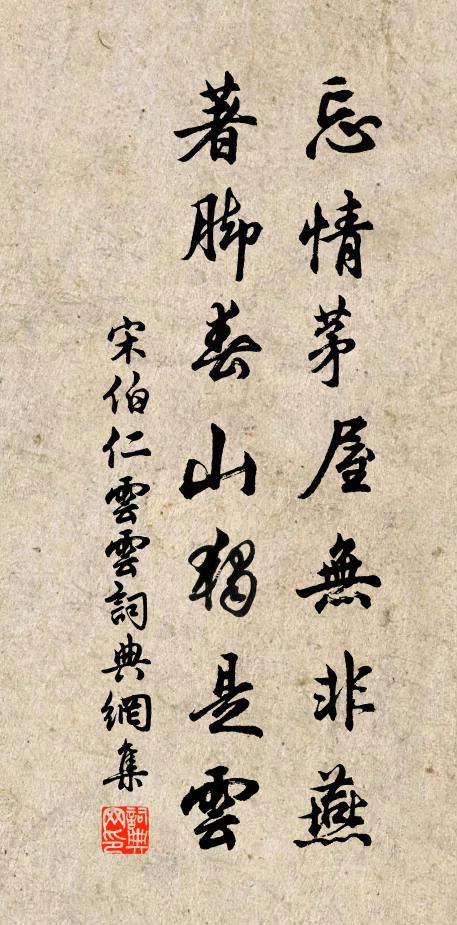 忘情茅屋無非燕
著脚春山獨是雲
宋伯仁雲雲詞典網集
詞典
网印